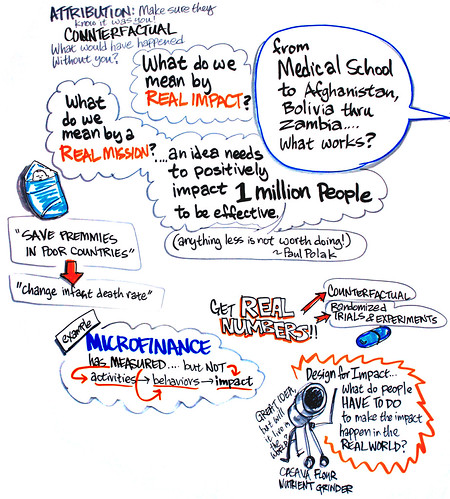 ATTRIBUTION: Make sure they
know it was you!
COUNTERFACTUAL
What would have happened
without you?
What do we
mean by
REAL IMPACT?
from
Medical School
to Afghanistan,
Bolivia thru
Zambia....
what works?
What
do we
mean by a
REAL MISSION?
...an idea needs
to positively
impact 1 million People
to be effective.
(anything less is not worth doing!)
~ Paul Polak
"SAVE PREMMIES
IN POOR COUNTRIES"
"change infant death rate"
GET REAL
NUMBERS!!
COUNTERFACTUAL
Randomized
TRIALS & EXPERIMENTS
example
MICROFINANCE
has MEASURED.... but NOT
activities → behaviors → impact
Design for Impact...
what do people
HAVE TO DO
to make the impact
happen in the
REAL WORLD?
GREAT IDEA,
but will
it live in
the
WORLD?
CASAVA FLOUR
NUTRIENT GRINDER